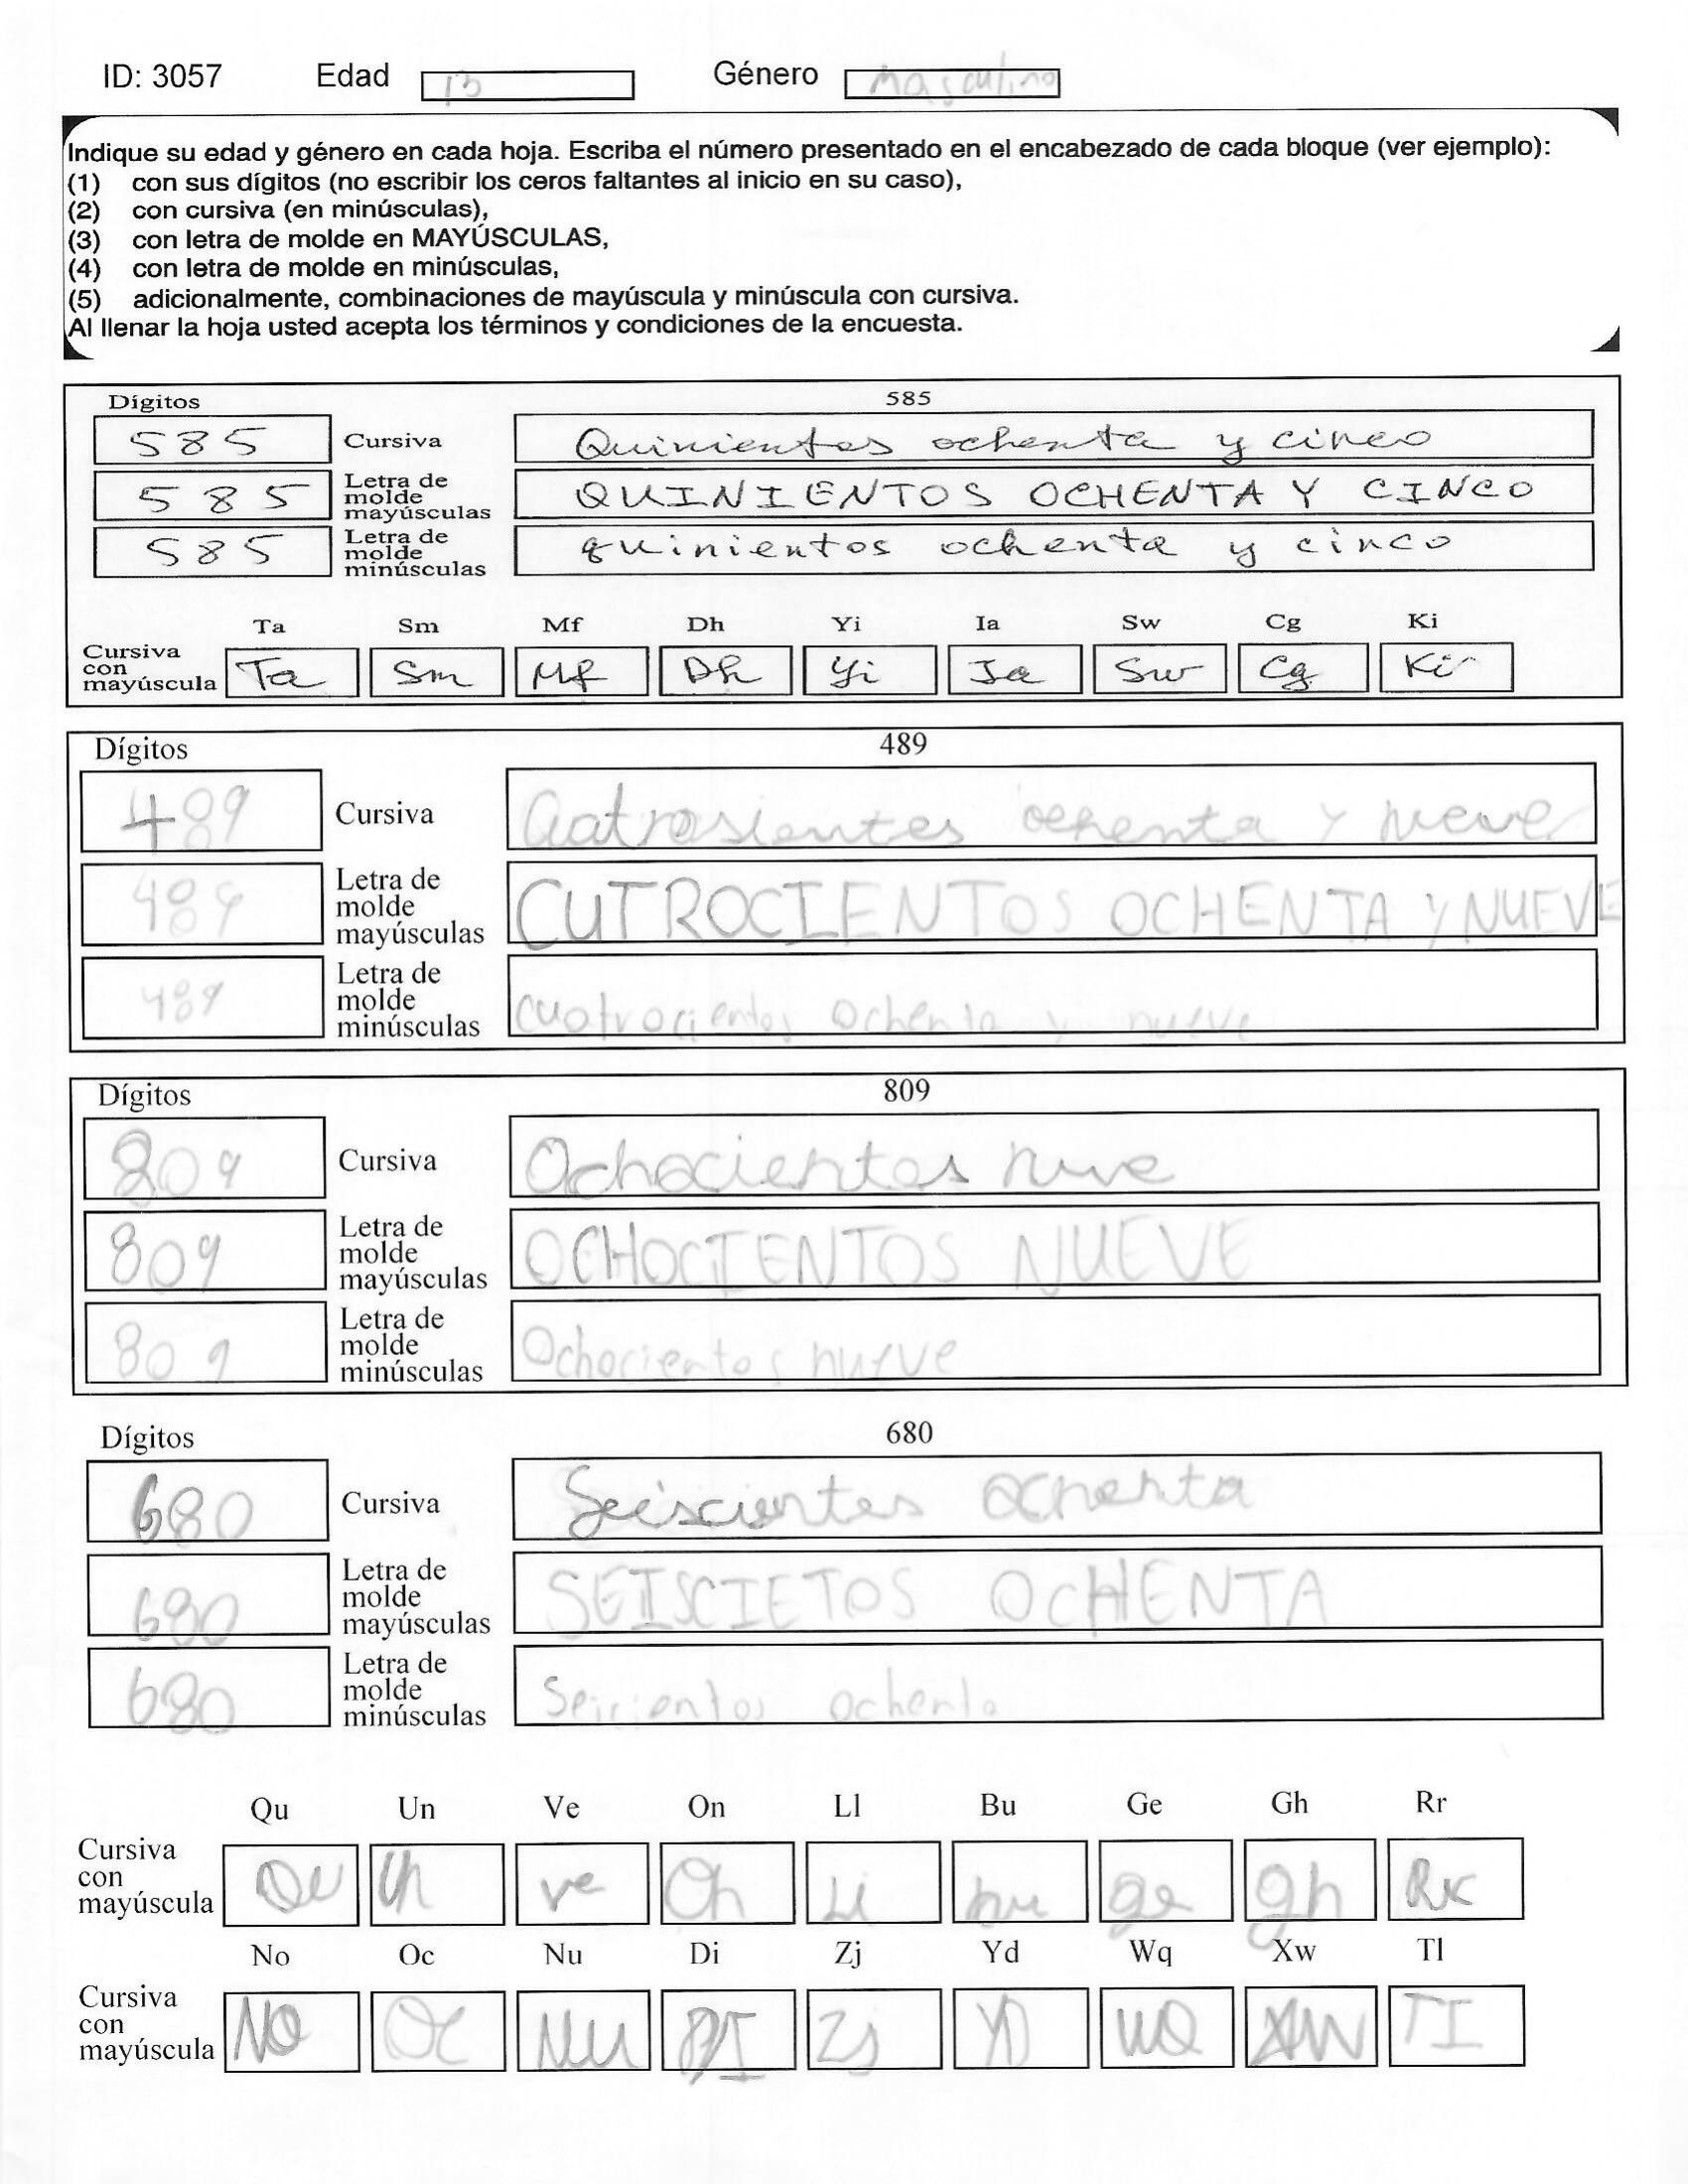 ID: 3057 Edad 13 Género Masculino
Indique su edad y género en cada hoja. Escriba el número presentado en el encabezado de cada bloque (ver ejemplo):
(1) con sus dígitos (no escribir los ceros faltantes al inicio en su caso),
(2) con cursiva (en minúsculas),
(3) con letra de molde en MAYÚSCULAS,
(4) con letra de molde en minúsculas,
(5) adicionalmente, combinaciones de mayúscula y minúscula con cursiva.
Al llenar la hoja usted acepta los términos y condiciones de la encuesta.
Dígitos 585
585 Cursiva Quinientos ochenta y cinco
585 Letra de molde mayúsculas QUINIENTOS OCHENTA Y CINCO
585 Letra de molde minúsculas quinientos ochenta y cinco
Ta Sm Mf Dh Yi Ia Sw Cg Ki
Cursiva con mayúscula Ta Sm Mf Dh Yi Ia Sw Cg Ki
Dígitos 489
489 Cursiva Cuatrosientes ochenta y nueve
489 Letra de molde mayúsculas CUTROCIENTOS OCHENTA Y NUEVE
489 Letra de molde minúsculas cuatrocientos ochenta y nueve
Dígitos 809
809 Cursiva Ochocientos nuve
809 Letra de molde mayúsculas OCHOCIENTOS NUEVE
809 Letra de molde minúsculas Ochocientos nueve
Dígitos 680
680 Cursiva Seiscientes ochenta
680 Letra de molde mayúsculas SEISCIETOS OCHENTA
680 Letra de molde minúsculas Seicientos ochenta
Qu Un Ve On Ll Bu Ge Gh Rr
Cursiva con mayúscula Qu Un ve On Li bu ge gh Rr
No Oc Nu Di Zj Yd Wq Xw Tl
Cursiva con mayúscula No Oc Nu DI Zj YD WQ XW TI